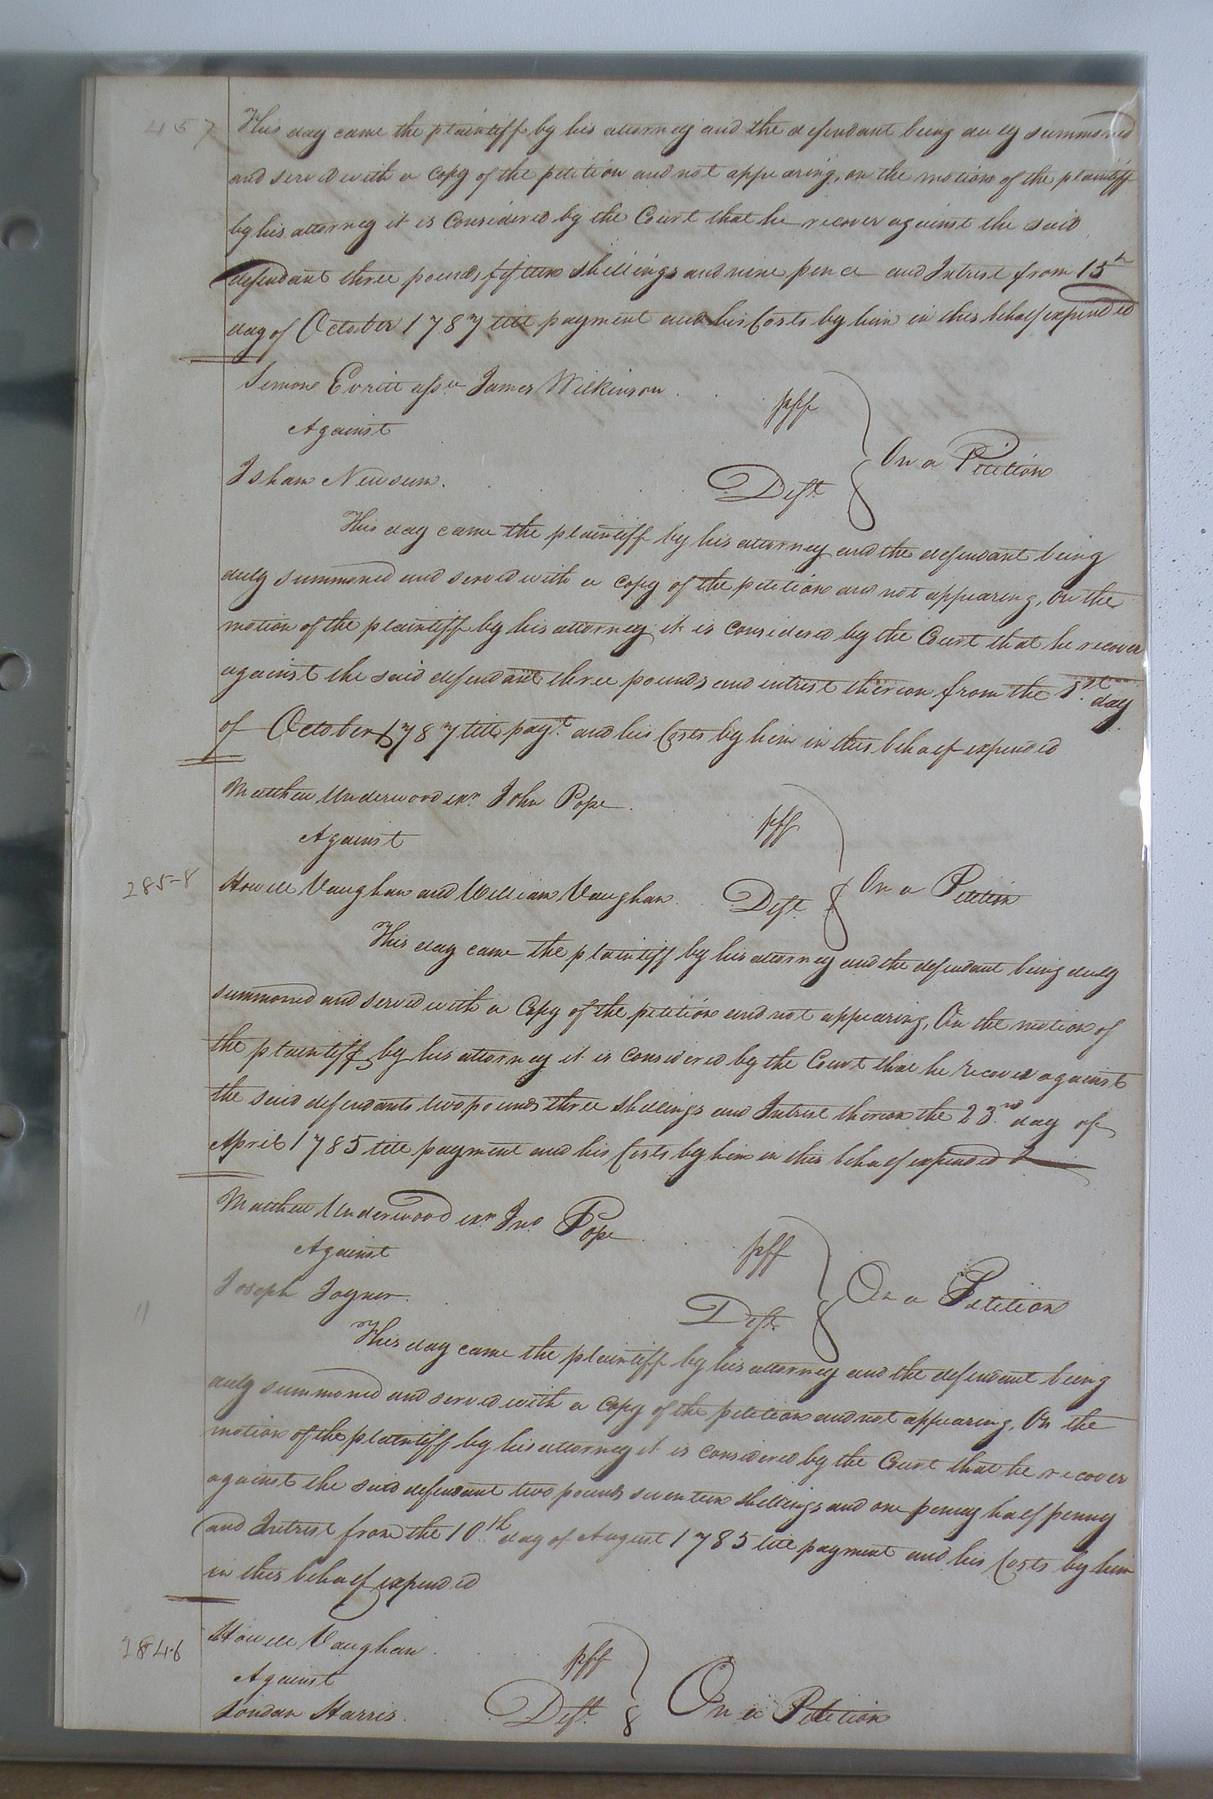 457
This day came the plaintiff by his attorney and the defendant being duly summoned
and served with a copy of the petition and not appearing, on the motion of the plaintiff
by his attorney it is Considered by the Court that he recover against the said
defendant three pounds, fifteen shillings and nine pence and Intrest from 15th
day of October 1787 till payment and his Costs by him in this behalf expended
Simons Evritt assee James Wilkinson . . plff
Against
On a Petition
Isham Newsum . . . Deft
This day came the plaintiff by his attorney and the defendant being
duly summoned and served with a copy of the petition and not appearing, On the
motion of the plaintiff by his attorney it is considered by the Court that he recover
against the said defendant three pounds and intrest thereon from the 1st day
of October 1787 till payt. and his Costs by him in this behalf expended
Matthew Underwood exr. John Pope . plff
Against
285-8
Howell Vaughan and William Vaughan . Deft. On a Petition
This day came the plaintiff by his attorney and the defendant being duly
summoned and served with a Copy of the petition and not appearing, On the motion of
the plaintiff by his attorney it is considered by the Court that he recover against
the said defendants two pounds three shillings and Intrest thereon the 23rd day of
April 1785 till payment and his Costs by him in this behalf expended
Matthew Underwood exr Jno Pope . . plff
Against
On a Petition
Joseph Joyner . Deft.
This day came the plaintiff by his attorney and the defendant being
duly summoned and served with a Copy of the petition and not appearing, On the
motion of the plaintiff by his attorney it is considered by the Court that he recover
against the said defendant two pounds seventeen shillings and one penny half penny
and Intrest from the 10th day of August 1785 till payment and his Costs by him
in this behalf expended
Howell Vaughan . . plff
284-6
Against
Jordan Harris . Deft. On a Petition